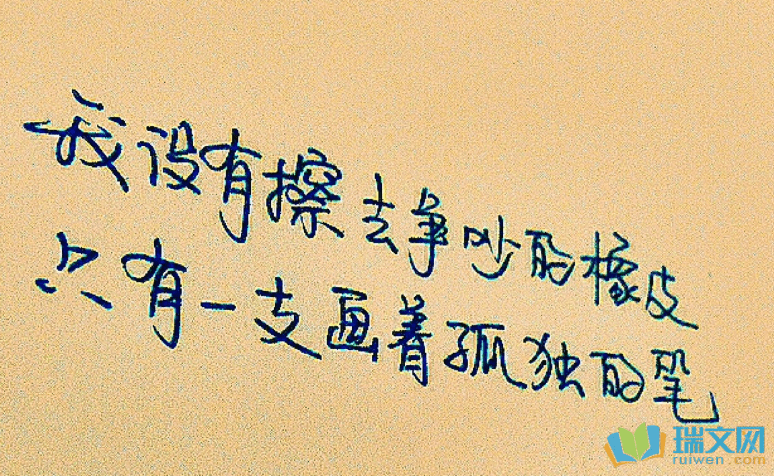 我没有擦去争吵的橡皮
只有一支画着孤独的笔
瑞文网
ruiwen.com